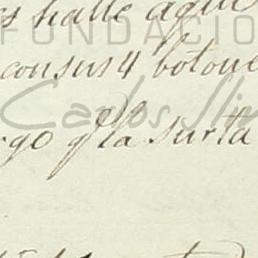 es halle aqui
FUNDACIÓ
consus 4 botone
Carlos Slim
rgo qᵉ la surta